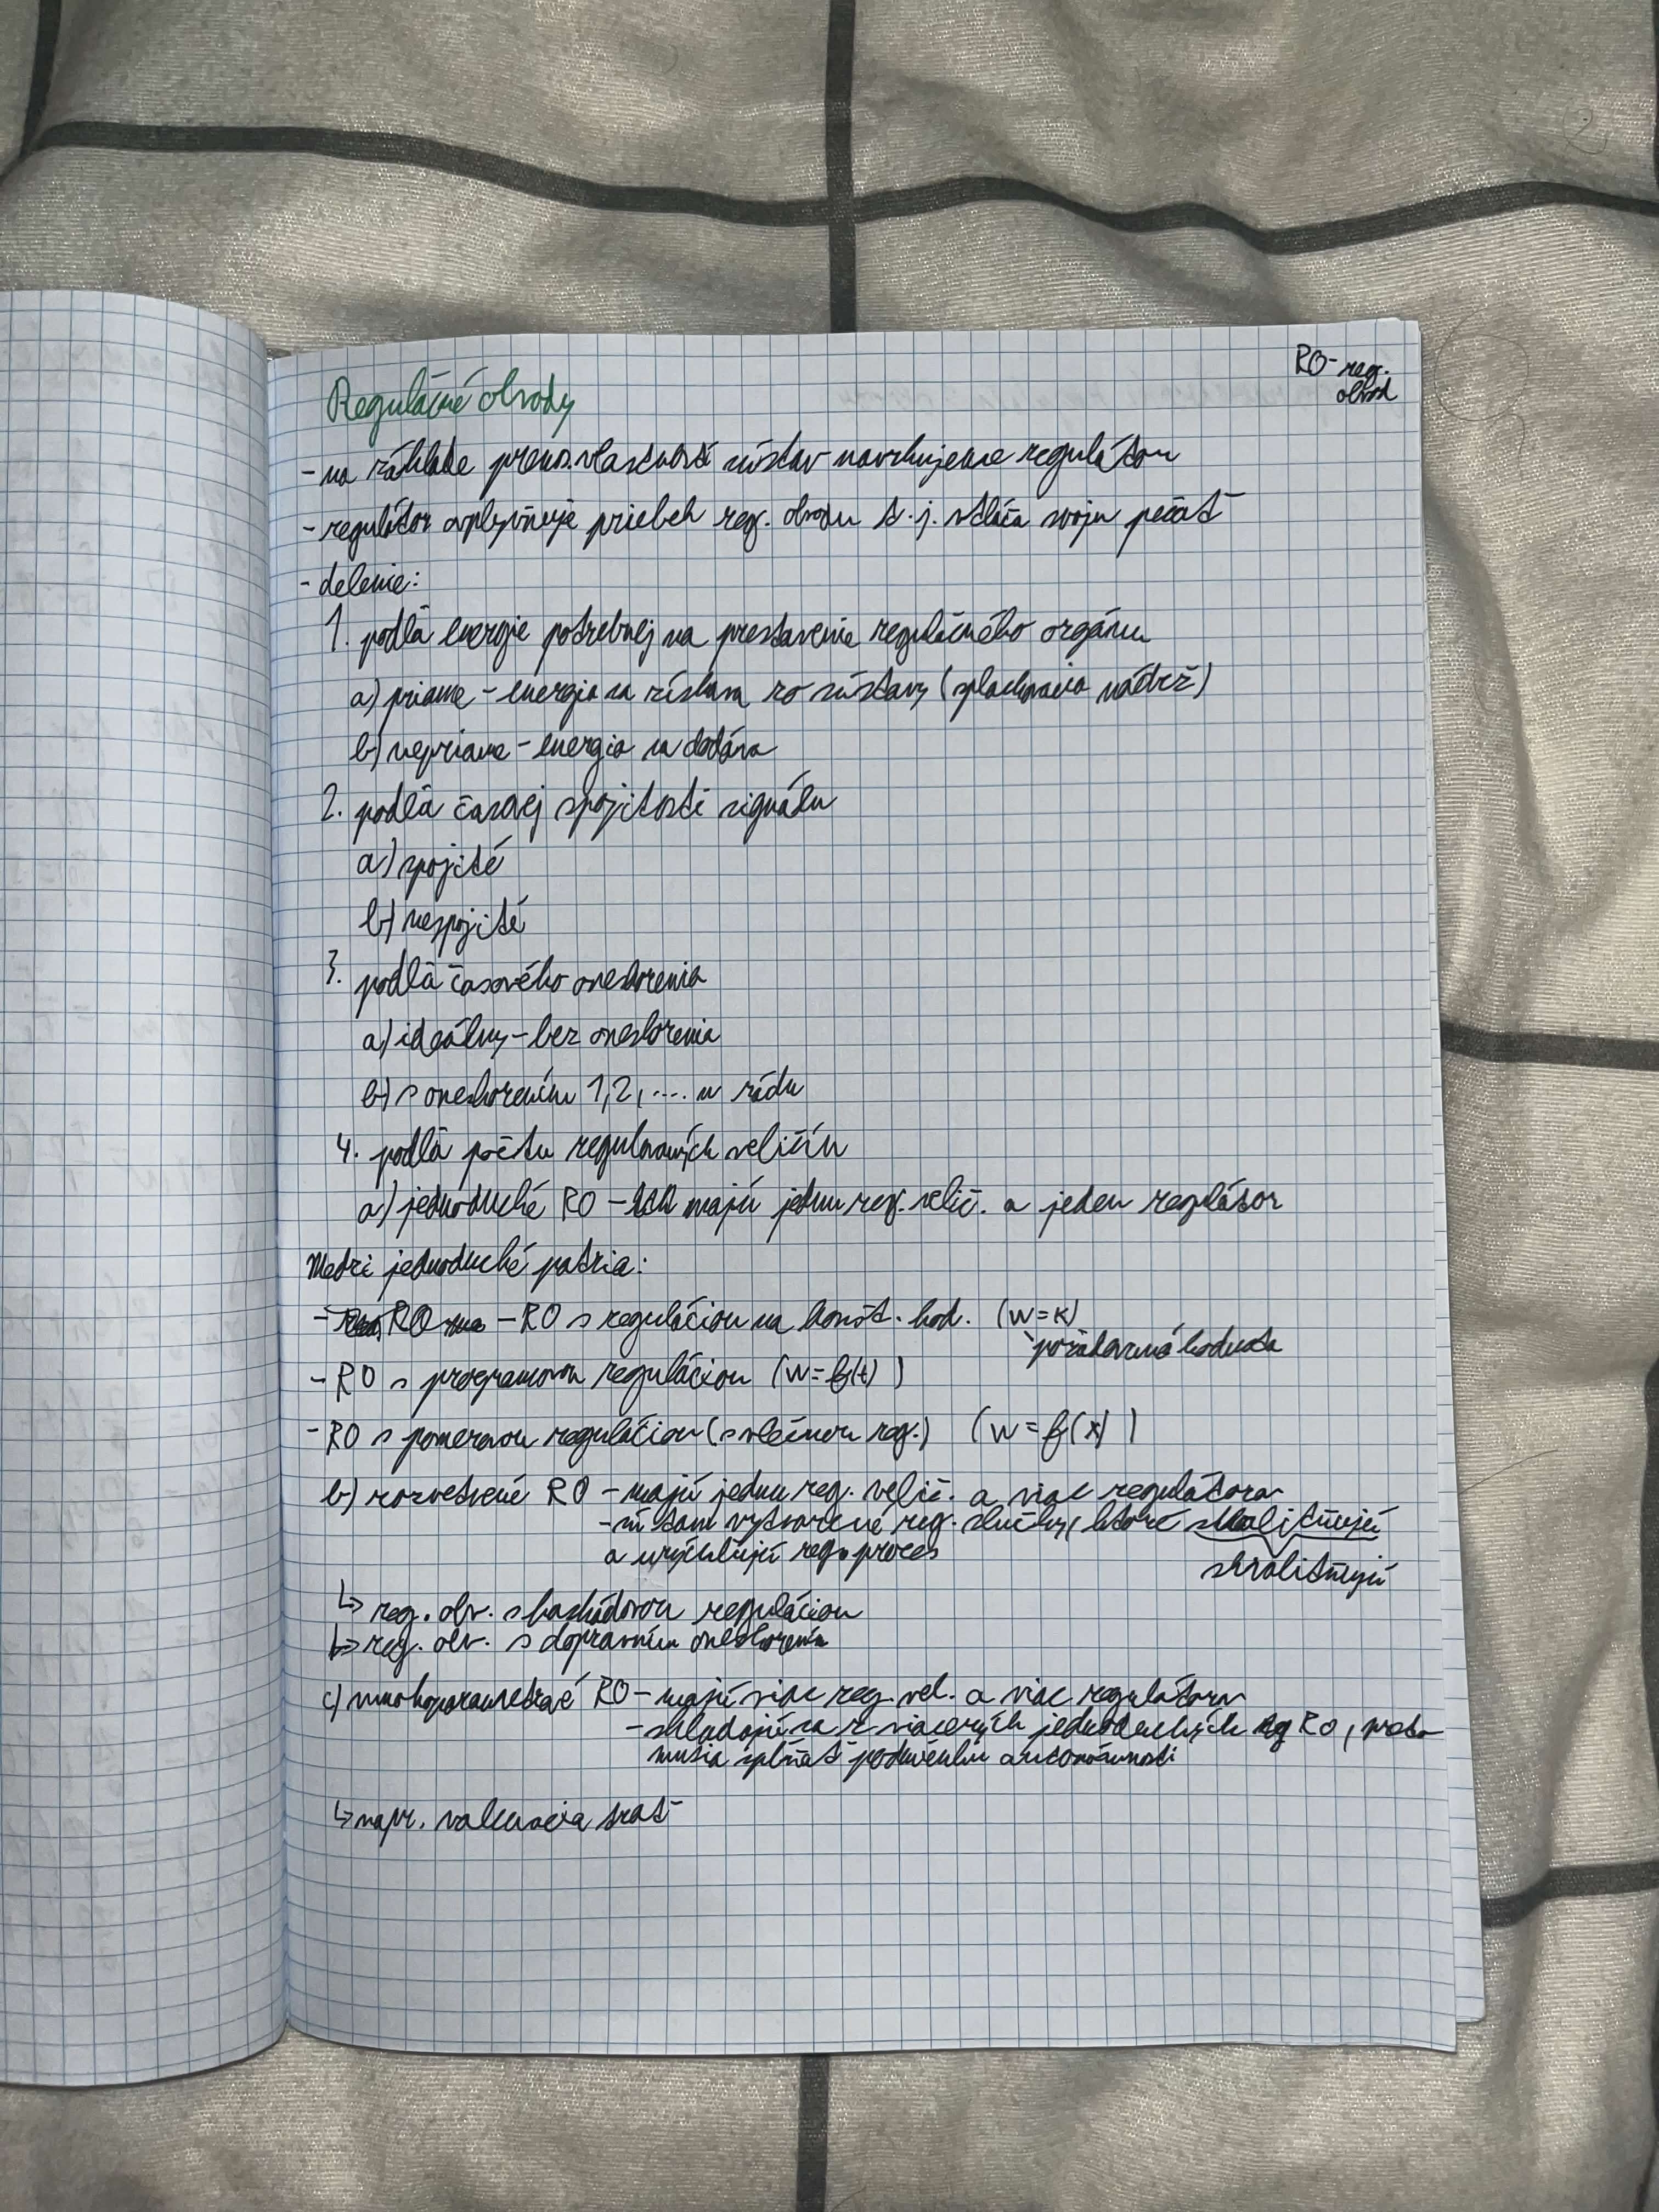 RO - reg.
obvod
Regulačné obvody
- na základe prenos. vlastností sústav navrhujeme regulátor
- regulátor ovplyvňuje priebeh reg. obvodu t. j. vtláča svoju pečať
- delenie:
1. podľa energie potrebnej na prestavenie regulačného orgánu
a) priame - energia sa získava zo sústavy (splachovacia nádrž)
b) nepriame - energia sa dodáva
2. podľa časovej spojitosti signálu
a) spojité
b) nespojité
3. podľa časového oneskorenia
a) ideálny - bez oneskorenia
b) s oneskorením 1, 2, .... n rádu
4. podľa počtu regulovaných veličín
a) jednoduché RO - majú jednu reg. velič. a jeden regulátor
Medzi jednoduché patria:
- RO - RO s reguláciou na konšt. hod. (w = k)
požadovaná hodnota
- RO s programovou reguláciou (w = f(t))
- RO s pomerovou reguláciou (s vlečnou reg.) (w = f(x))
b) rozvetvené RO - majú jednu reg. velič. a viac regulátorov
- sú tam vytvorené reg. slučky, ktoré skvalitňujú
a urýchľujú reg. proces
skvalitňujú
↳ reg. obv. s kaskádovou reguláciou
↳ reg. obv. s dopravným oneskorením
c) mnohoparametrové RO - majú viac reg. vel. a viac regulátorov
- skladajú sa z viacerých jednoduchých RO, preto
musia spĺňať podmienku autonómnosti
↳ napr. valcovacia trať